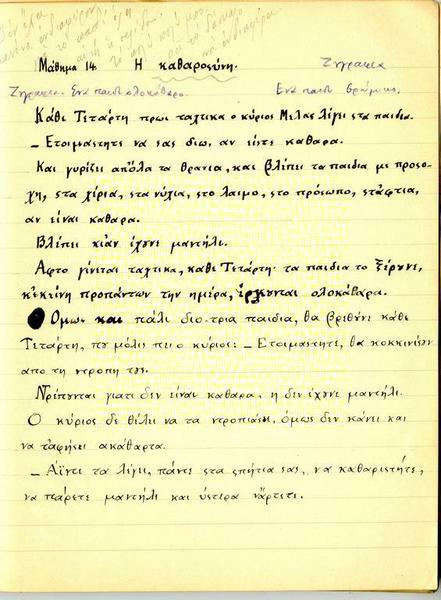 Μαθημα 14. Η καθαροσύνη.
Ζγραφια
Ζγραφια. Ενα παιδι ολοκαθαρο. Ενα παιδι βρόμικο.
Κάθε Τετάρτη πρωι ταχτικα ο κύριος Μελας λέγι στα παιδια.
– Ετοιμαστητε να σας διω, αν είστε καθαρα.
Και γυρίζει απ'όλα τα θρανια, και βλέπει τα παιδια με προσο-
χη, στα χέρια, στα νύχια, στο λαιμο, στο πρόσωπο, στ'αφτια,
αν είναι καθαρα.
Βλέπει κι'αν έχουνε μαντήλι.
Αφτο γίνεται ταχτικα, κάθε Τετάρτη· τα παιδια το ξέρουνε,
κ'εκείνη προπάντων την ημέρα, έρχονται ολοκάθαρα.
Ομως και πάλι διο-τρια παιδια, θα βρεθούνε κάθε
Τετάρτη, που μόλις πει ο κύριος: – Ετοιμαστητε, θα κοκκινίσουν
απο τη ντροπη τους.
Ντρέπονται γιατι δεν είναι καθαρα, η δεν έχουνε μαντήλι.
Ο κύριος δε θέλει να τα ντροπιάσει, όμως δεν κάνει και
να τ'αφήσει ακάθαρτα.
– Αϊντε τα λέγει, πάντε στα σπήτια σας, να καθαριστήτε,
να πάρετε μαντήλι και ύστερα νάρτετε.